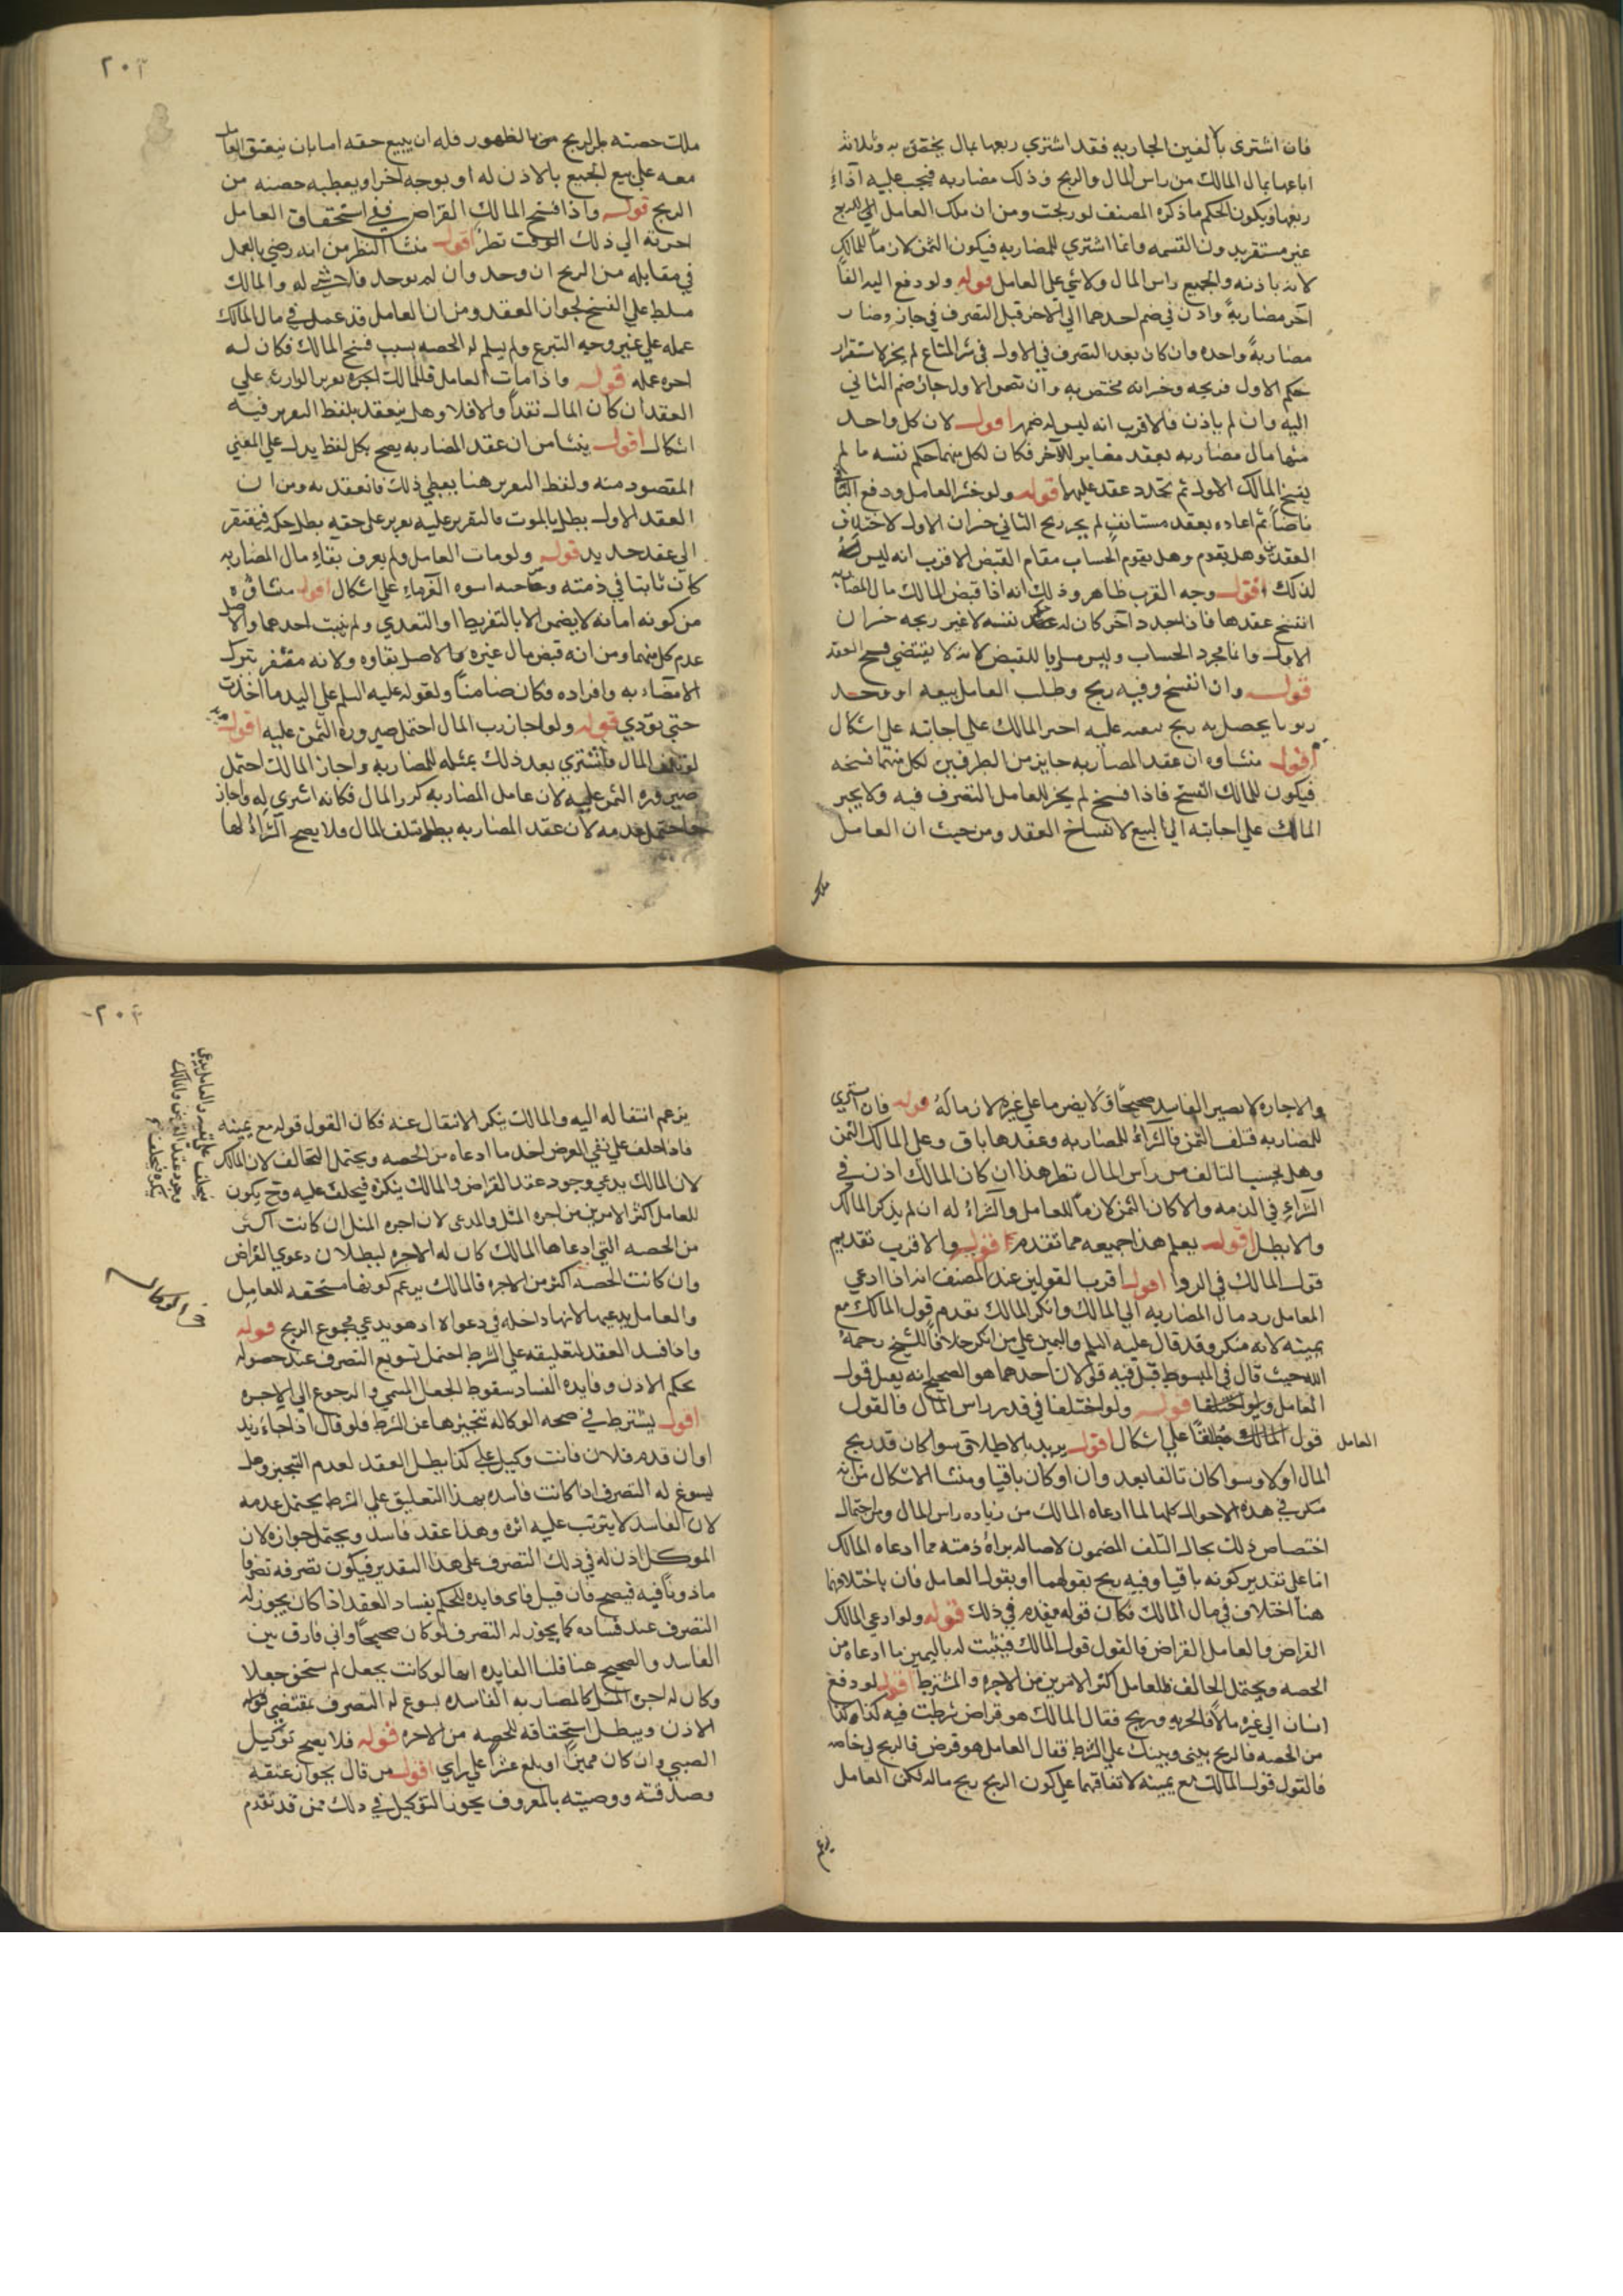 فان اشترى بالفين الجاريه فقد اشتري ربعها بمال يختص به وثلاثه
ارباعها بمال المالك من راس المال والربح وذلك مضاربه فيجب عليه اداء
ربعها ويكون الحكم ما ذكره المصنف لو ربحت ومن ان ملك العامل الي الربح
غير مستقر بدون القسمه وانما اشتري للمضاربه فيكون الثمن لازما للمالك
لانه باذنه والجميع راس المال ولا شي علي العامل قوله ولو دفع اليه الفا
آخر مضاربة واذن في ضم احدهما الي الاخر قبل التصرف في جاز وصار
مضاربة واحده وان كان بعد التصرف في الاول في شرا المتاع لم يجز لاستقرار
حكم الاول فربحه وخسرانه مختص به وان نض الاول جاز ضم الثاني
اليه وان لم ياذن فالاقرب انه ليس له ضمه اقول لان كل واحد
منها مال مضاربه بعقد مغاير للآخر فكان لكل منهما حكم نفسه ما لم
يفسخ المالك الاول ثم تجدد عقد عليهما قوله ولو خسر العامل ودفع الثاني
ناضا ثم اعاده بعقد مستانف لم يجبر ربح الثاني خسران الاول لاختلاف
العقدين وهل يقدم وهل يقوم الحساب مقام القبض الاقرب انه ليس
لذلك اقول وجه القرب ظاهر وذلك انه اذا قبض المالك مال المضاربه
انفسخ عقدها فاذا جدد آخر كان له حكم نفسه لا غير ربحه خسران
الاول واما مجرد الحساب وليس مساويا للقبض لانه لا يقتضي فسخ العقد
قوله وان انفسخ وفيه ربح وطلب العامل بيعه او وجد
زبونا يحصل به ربح ببيعه عليه اجبر المالك علي اجابته علي اشكال
اقول منشاوه ان عقد المضاربه جايز من الطرفين لكل منهما فسخه
فيكون للمالك الفسخ فاذا فسخ لم يجز للعامل التصرف فيه ولا يجبر
المالك علي اجابته الي البيع لانفساخ العقد ومن حيث ان العامل
ملك
٢٠٢
ملك حصته من الربح بالظهور فله ان يبيع حقه اما بان يتفق العامل
معه علي بيع الجميع بالاذن له او بوجه آخر او يعطيه حصته من
الربح قوله واذا فسخ المالك القراض ففي استحقاق العامل
اجرته الي ذلك الوقت نظر اقول منشا النظر من انه رضي بالعمل
في مقابله من الربح ان وجد وان لم يوجد فلا شي له والمالك
مسلط علي الفسخ لجواز العقد ومن ان العامل قد عمل في مال المالك
عمله علي غير وجه التبرع ولم يسلم له الحصه بسبب فسخ المالك فكان له
اجره عمله قوله واذا مات العامل فللمالك تقرير الوارث علي
العقد ان كان المال نقدا والا فلا وهل ينعقد بلفظ التقرير فيه
اشكال اقول ينشا من ان عقد المضاربه يصح بكل لفظ يدل علي المعني
المقصود منه ولفظ التقرير هنا يعطي ذلك فانعقد به ومن ان
العقد الاول بطل بالموت فالتقرير عليه تقرير علي حقه بطل حكمه فيفتقر
الي عقد جديد قوله ولو مات العامل ولم يعرف بقاء مال المضاربه
كان ثابتا في ذمته وصاحبه اسوه الغرماء علي اشكال اقول منشاؤه
من كونه امانه لا يضمن الا بالتفريط او التعدي ولم يثبت احدهما والاصل
عدم كل منهما ومن انه قبض مال غيره والاصل بقاوه ولانه مفرط بترك
الايصاء به وافراده فكان ضامنا ولقوله عليه السلم علي اليد ما اخذت
حتي تؤدي قوله ولو اجاز رب المال احتمل صيروره الثمن عليه اقول
لو تلف المال فاشتري بعد ذلك بمثله للمضاربه واجاز المالك احتمل
صيروره الثمن عليه لان عامل المضاربه كرر المال فكانه اشتري له واجاز
واحتمل عدمه لان عقد المضاربه بطل بتلف المال فلا يصح الشراء لها
والاجازه لا يصير الفاسد صحيحا ولا يضر ما علي غيره لازما له قوله فان اشتري
للمضاربه فتلف الثمن فالشراء للمضاربه وعقدها باق وعلي المالك الثمن
وهل يحسب التالف من راس المال نظر هذا ان كان المالك اذن في
الشراء في الذمه والا كان الثمن لازما للعامل والشراء له ان لم يذكر المالك
والا بطل اقول يعلم هذا جميعه مما تقدم قوله والاقرب تقديم
قول المالك في الرد اقول اقرب القولين عند المصنف انه اذا ادعي
العامل رد مال المضاربه الي المالك وانكر المالك تقدم قول المالك مع
يمينه لانه منكر وقد قال عليه السلم واليمين علي من انكر خلافا للشيخ رحمه
الله حيث قال في المبسوط قيل فيه قولان احدهما هو الصحيح انه يقبل قول
العامل قوله ولو اختلفا في قدر راس المال فالقول
العامل
قول المالك مطلقا علي اشكال اقول يريد بالاطلاق سوا كان قد ربح
المال اولا وسوا كان تالفا بعد وان او كان باقيا ومنشا الاشكال من انه
منكر في هذه الاحوال كلها لما ادعاه المالك من زياده راس المال ومن احتمال
اختصاص ذلك بحال التلف المضمون لاصاله براءة ذمته مما ادعاه المالك
اما علي تقدير كونه باقيا وفيه ربح بقولهما او بقول العامل فان باختلافهما
هنا اختلاف في مال المالك فكان قوله مقدم في ذلك قوله ولو ادعي المالك
القراض والعامل القراض فالقول قول المالك فيثبت له باليمين ما ادعاه من
الحصه ويحتمل التحالف فللعامل اكثر الامرين من الاجره والمشترط اقول لو دفع
انسان الي غيره مالا فاتجر به وربح فقال المالك هو قراض شرطت فيه كذا وكذا
من الحصه فالربح بيني وبينك علي الشرط فقال العامل هو قرض فالربح لي خاصه
فالقول قول المالك مع يمينه لاتفاقهما علي كون الربح ربح ماله لكن العامل
يزعم
٢٠٣
يزعم انتقاله اليه والمالك ينكر الانتقال عنه فكان القول قوله مع يمينه
فاذا حلف علي نفي القرض اخذ ما ادعاه من الحصه ويحتمل التحالف لان المالك
لان المالك يدعي وجود عقد القراض والمالك ينكره فيحلف عليه وح يكون
للعامل اكثر الامرين من اجره المثل والمدعي لان اجره المثل ان كانت اكثر
من الحصه التي ادعاها المالك كان له الاجره لبطلان دعوي القراض
وان كانت الحصه اكثر من الاجره فالمالك يزعم كونها مستحقه للعامل
والعامل يدعيها لانها داخله في دعواه اذ هو يدعي مجموع الربح قوله
في الوكاله
واذا فسد العقد لتعليقه علي الشرط احتمل تسويغ التصرف عند حصوله
بحكم الاذن وفايده الفساد سقوط الجعل المسمي والرجوع الي الاجره
اقول يشترط في صحه الوكاله تنجيزها عن الشرط فلو قال اذا جاء زيد
او ان قدم فلان فانت وكيلي علي كذا بطل العقد لعدم التنجيز وهل
يسوغ له التصرف اذا كانت فاسده بهذا التعليق علي الشرط يحتمل عدمه
لان الفاسد لا يترتب عليه اثره وهذا عقد فاسد ويحتمل جوازه لان
الموكل اذن له في ذلك التصرف علي هذا التقدير فيكون تصرفه تصرفا
ماذونا فيه فيصح فان قيل فاي فايده للحكم بفساد العقد اذا كان يجوز له
التصرف عند فساده كما يجوز له التصرف لو كان صحيحا واي فارق بين
الفاسد والصحيح هنا قلنا الفايده انها لو كانت بجعل لم يستحق جعلا
وكان له اجره المثل كالمضاربه الفاسده يسوغ له التصرف بمقتضي قوله
الاذن ويبطل استحقاقه للحصه من الاجره قوله فلا يصح توكيل
الصبي وان كان مميزا او بلغ عشرا علي راي اقول من قال بجواز عتقه
وصدقته ووصيته بالمعروف يجوز التوكيل في ذلك ممن قد تقدم